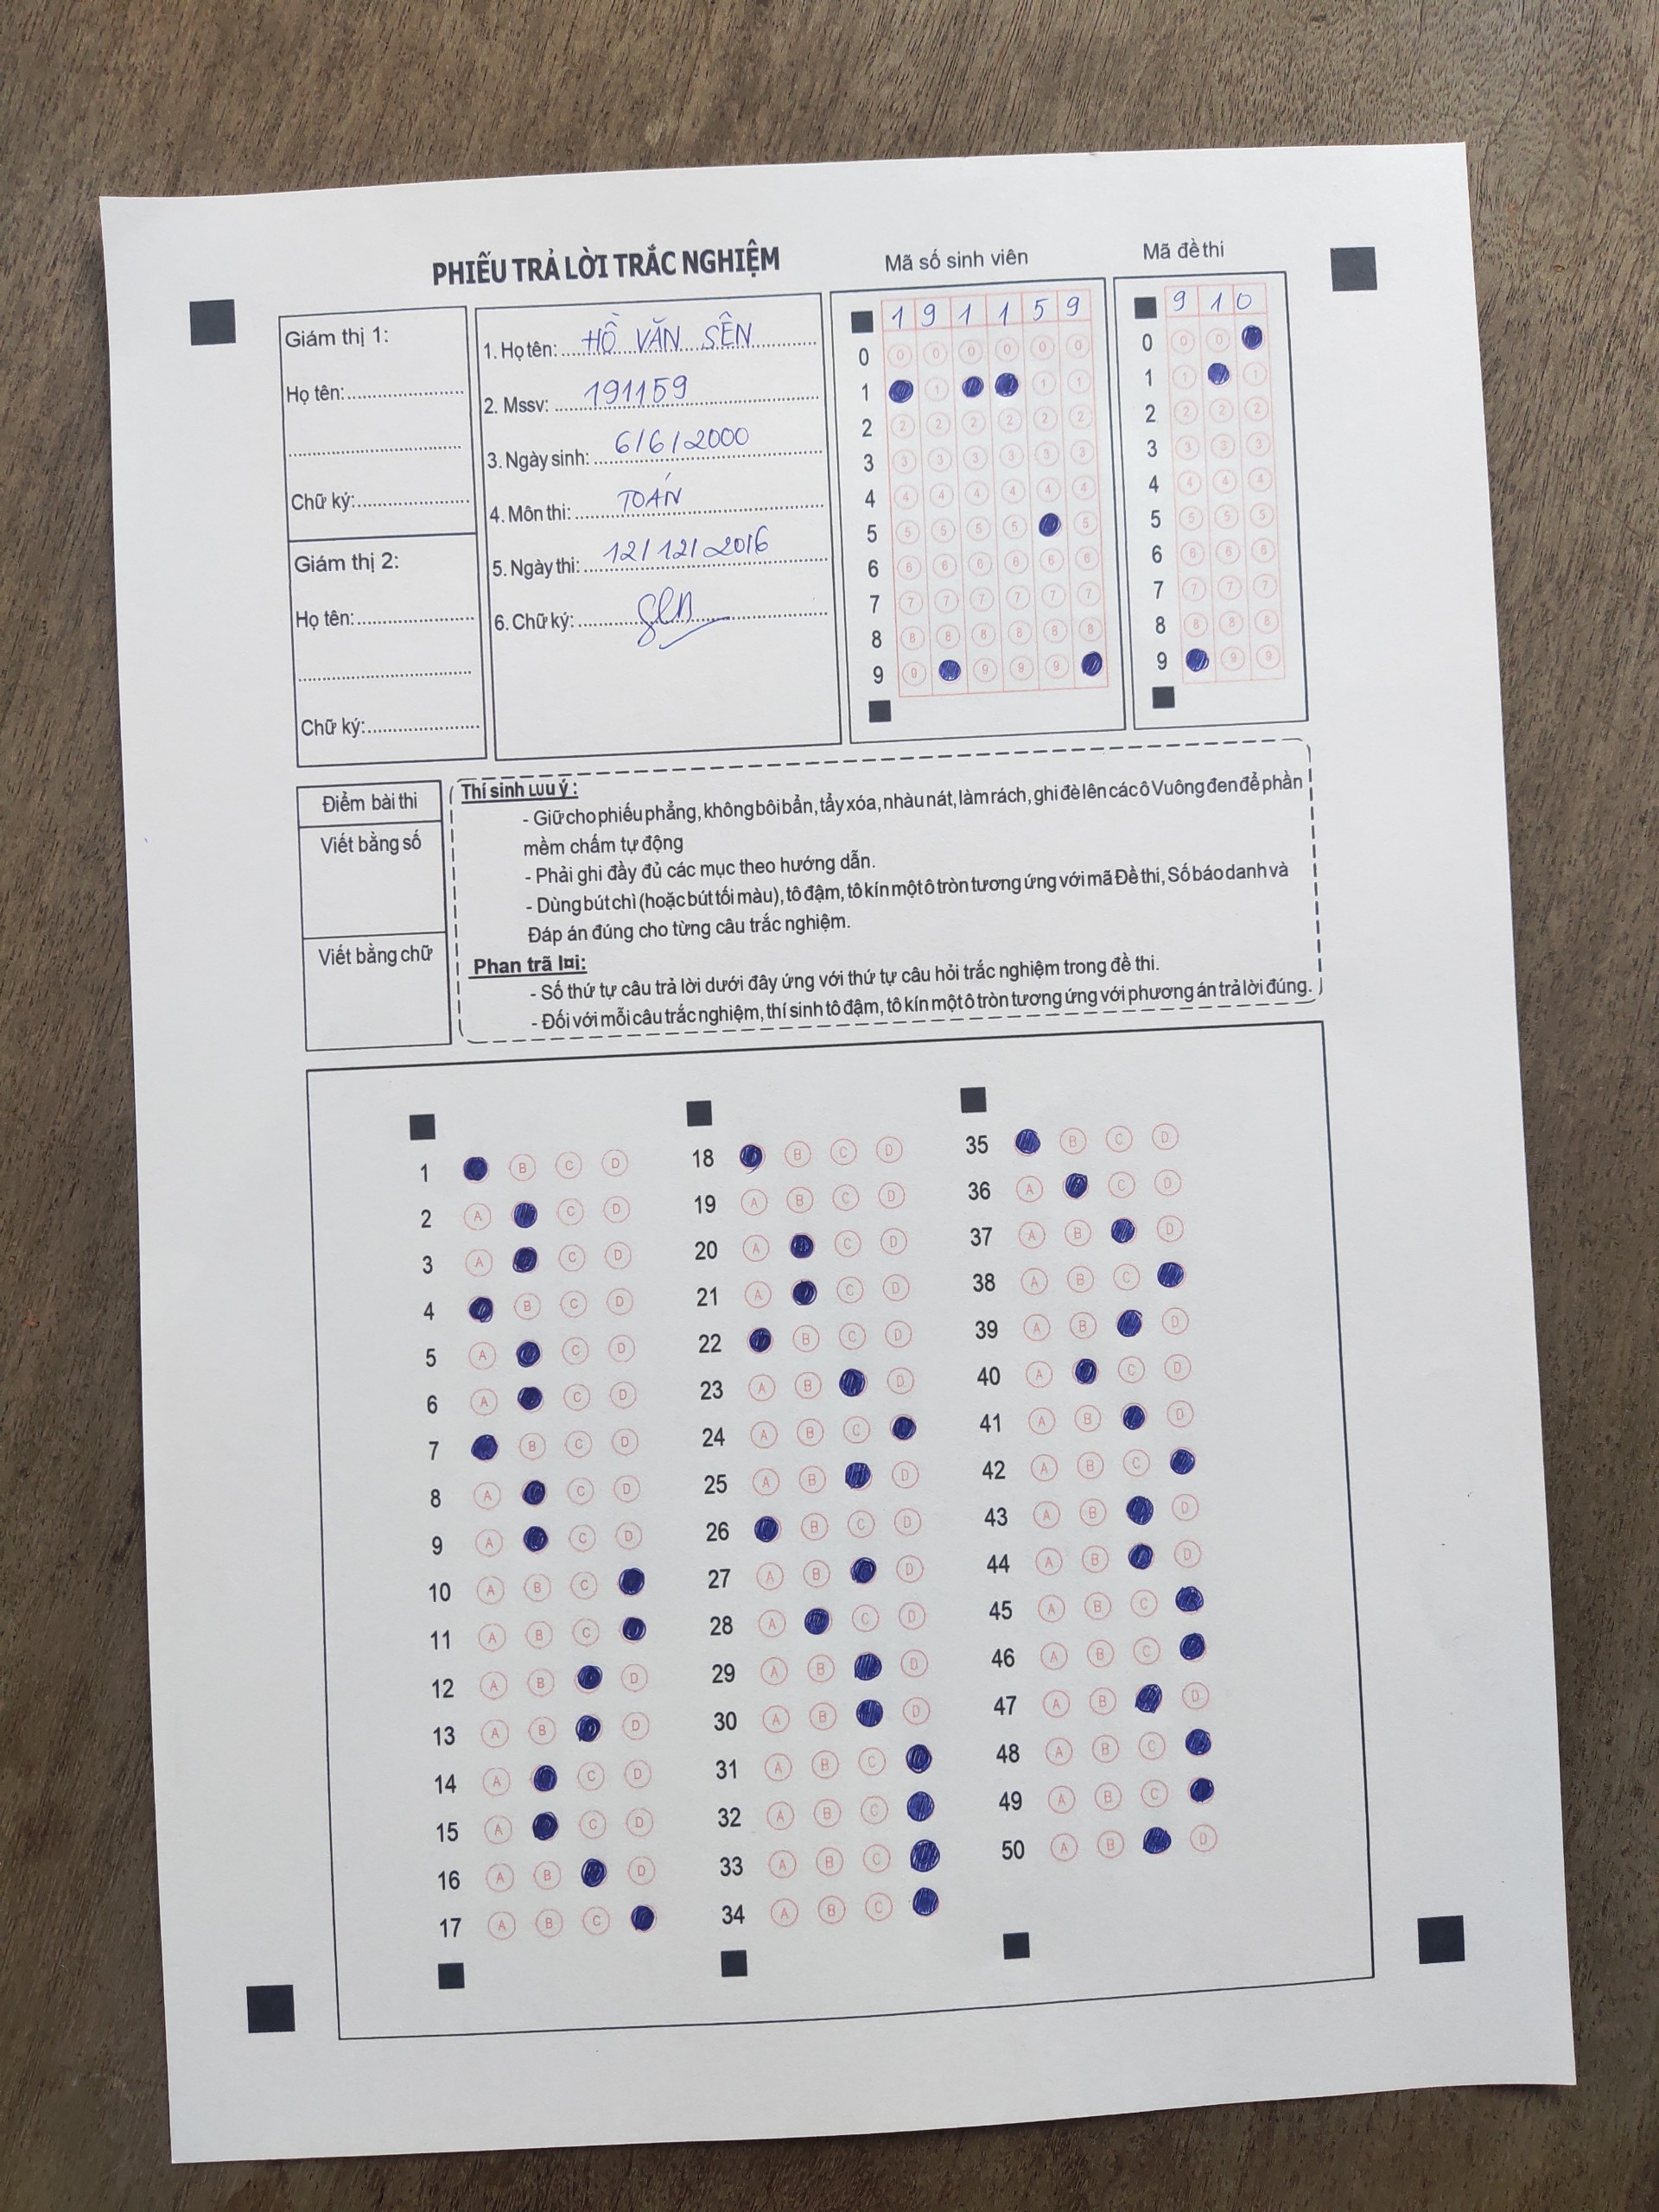 PHIẾU TRẢ LỜI TRẮC NGHIỆM
Mã số sinh viên
Mã đề thi
Giám thị 1:
Họ tên:
Chữ ký:
Giám thị 2:
Họ tên:
Chữ ký:
1. Họ tên: HỒ VĂN SÊN
2. Mssv: 191159
3. Ngày sinh: 6/6/2000
4. Môn thi: TOÁN
5. Ngày thi: 12/12/2016
6. Chữ ký: Sên
1 9 1 1 5 9
0 0 0 0 0 0 0
1 1 1 1
2 2 2 2 2 2 2
3 3 3 3 3 3 3
4 4 4 4 4 4 4
5 5 5 5 5 5
6 6 6 6 6 6 6
7 7 7 7 7 7 7
8 8 8 8 8 8 8
9 9 9 9 9
9 1 0
0 0 0
1 1 1
2 2 2 2
3 3 3 3
4 4 4 4
5 5 5 5
6 6 6 6
7 7 7 7
8 8 8 8
9 9 9
Điểm bài thi
Viết bằng số
Viết bằng chữ
Thí sinh Lưu ý :
- Giữ cho phiếu phẳng, không bôi bẩn, tẩy xóa, nhàu nát, làm rách, ghi đè lên các ô Vuông đen để phần
mềm chấm tự động
- Phải ghi đầy đủ các mục theo hướng dẫn.
- Dùng bút chì (hoặc bút tối màu), tô đậm, tô kín một ô tròn tương ứng với mã Đề thi, Số báo danh và
Đáp án đúng cho từng câu trắc nghiệm.
Phan trã l¤i:
- Số thứ tự câu trả lời dưới đây ứng với thứ tự câu hỏi trắc nghiệm trong đề thi.
- Đối với mỗi câu trắc nghiệm, thí sinh tô đậm, tô kín một ô tròn tương ứng với phương án trả lời đúng.
1 B C D
2 A C D
3 A C D
4 B C D
5 A C D
6 A C D
7 B C D
8 A C D
9 A C D
10 A B C
11 A B C
12 A B D
13 A B D
14 A C D
15 A C D
16 A B D
17 A B C
18 B C D
19 A B C D
20 A C D
21 A C D
22 B C D
23 A B D
24 A B C
25 A B D
26 B C D
27 A B D
28 A C D
29 A B D
30 A B D
31 A B C
32 A B C
33 A B C
34 A B C
35 B C D
36 A C D
37 A B D
38 A B C
39 A B D
40 A C D
41 A B D
42 A B C
43 A B D
44 A B D
45 A B C
46 A B C
47 A B D
48 A B C
49 A B C
50 A B D